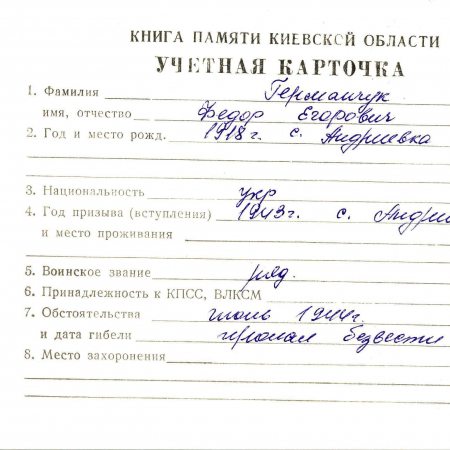 КНИГА ПАМЯТИ КИЕВСКОЙ ОБЛАСТИ
УЧЕТНАЯ КАРТОЧКА
1. Фамилия Германчук
имя, отчество Федор Егорович
2. Год и место рожд. 1918г. с. Андриевка
3. Национальность укр
4. Год призыва (вступления) 1943г. с. Андри
и место проживания
5. Воинское звание ряд.
6. Принадлежность к КПСС, ВЛКСМ
7. Обстоятельства июль 1944г.
и дата гибели пропал безвести
8. Место захоронения